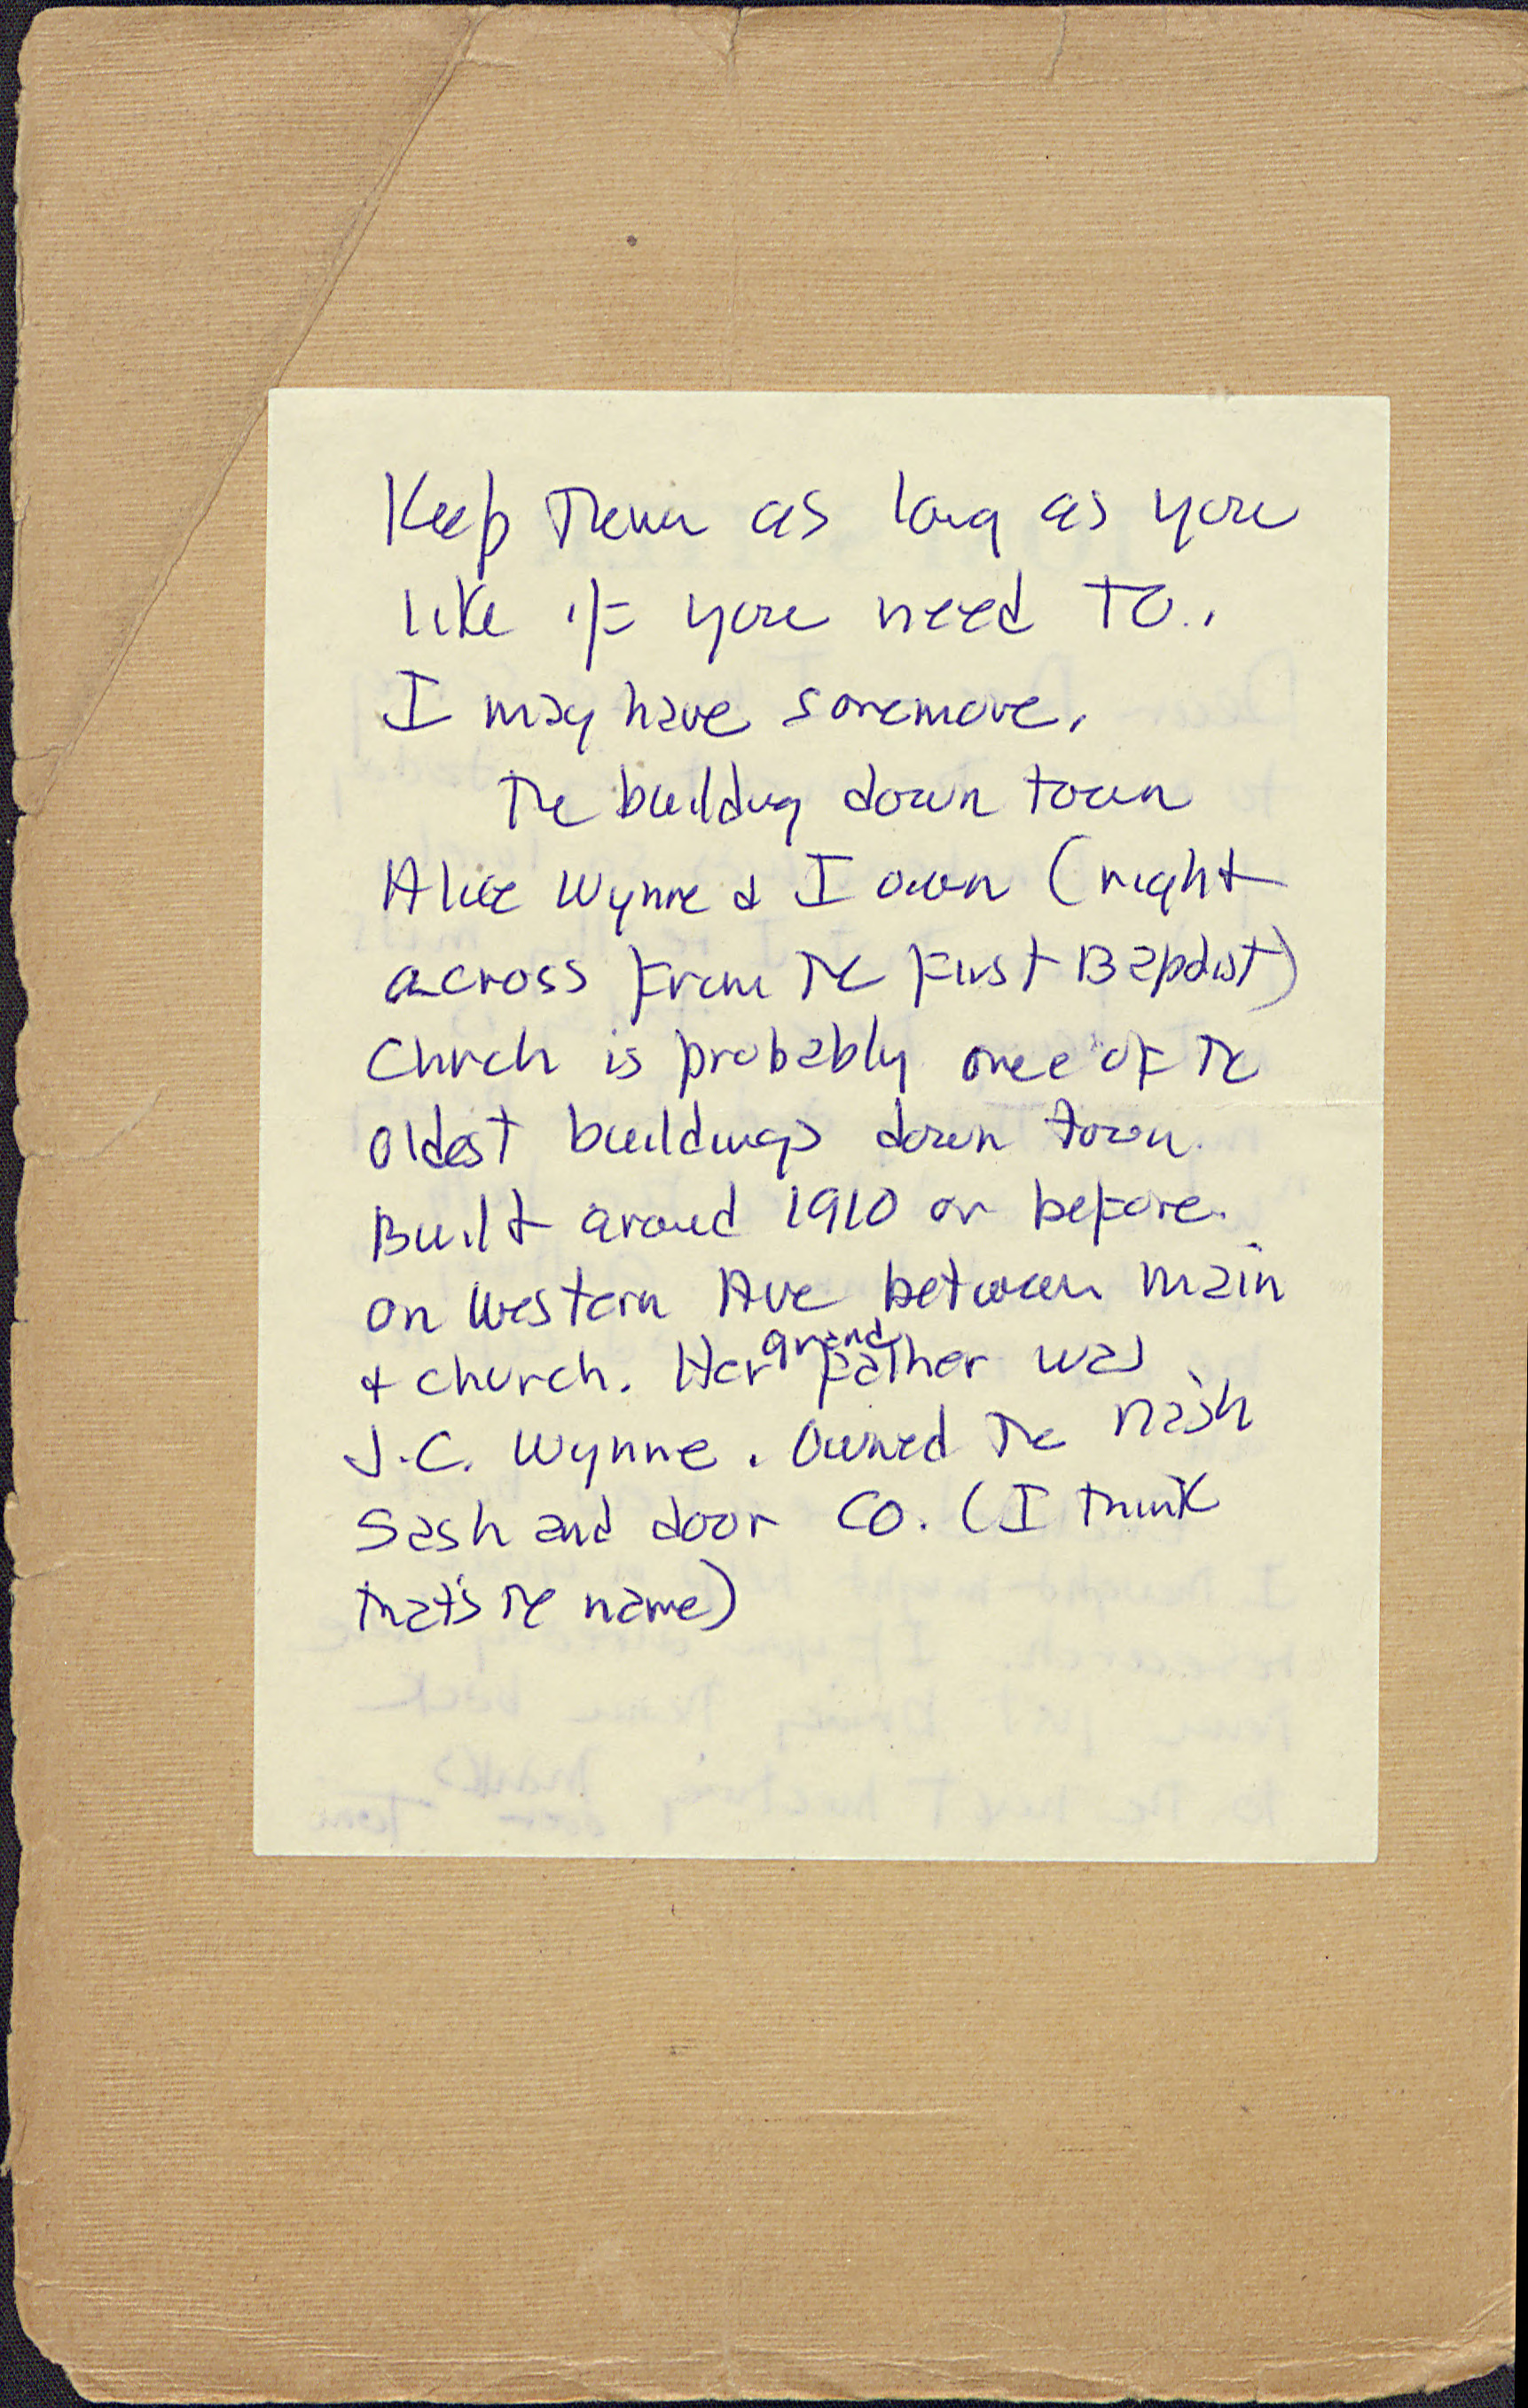 Keep them as long as you
like if you need to.
I may have somemore.
The building down town
Alice Wynne & I own (right
across from the First Baptist)
Chrch is probably onee of the
oldest buildings down town.
Built around 1910 or before.
on Western Ave between main
& church. Her grandfather was
J.C. Wynne. Owned the Nash
Sash and door Co. (I think
that's the name)